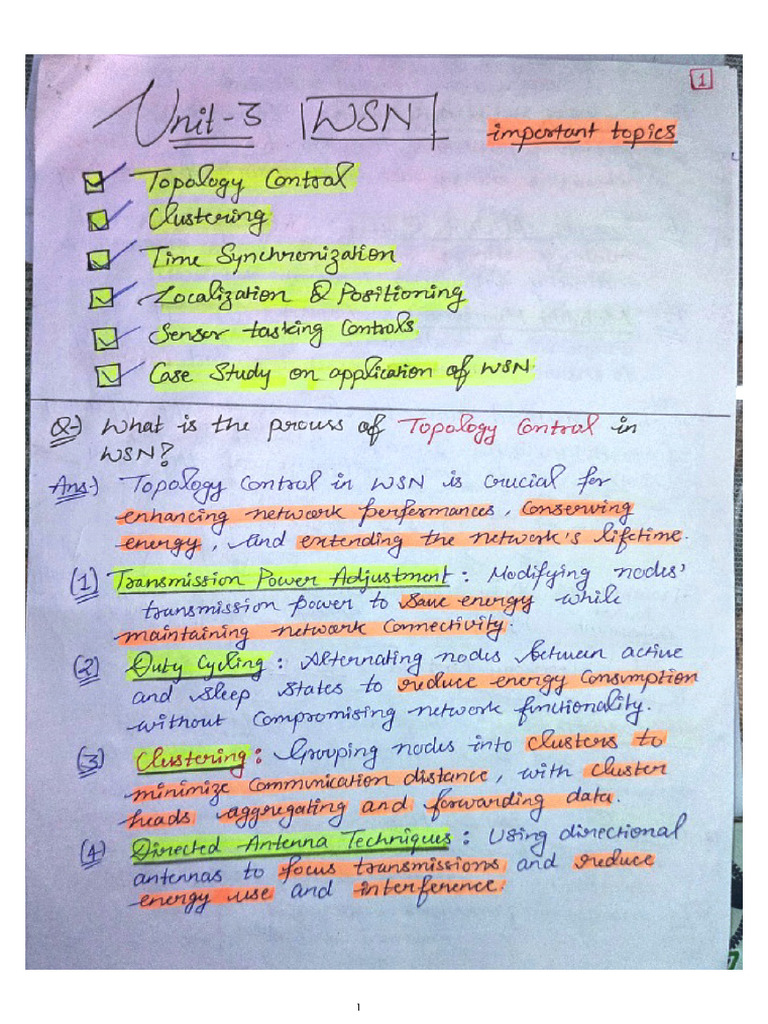 1
Unit-3 WSN important topics
Topology Control
Clustering
Time Synchronization
Localization & Positioning
Sensor tasking Controls
Case Study on application of WSN.
Q-) What is the process of Topology Control in
WSN?
Ans-) Topology Control in WSN is crucial for
enhancing network performances, Conserving
energy, and extending the network's lifetime.
(1) Transmission Power Adjustment: Modifying nodes'
transmission power to save energy while
maintaining network Connectivity.
(2) Duty Cycling: Alternating nodes between active
and sleep states to reduce energy Consumption
without Compromising network functionality.
(3) Clustering: Grouping nodes into clusters to
minimize Communication distance, with cluster
heads aggregating and forwarding data.
(4) Directed Antenna Techniques: Using directional
antennas to focus transmissions and reduce
energy use and interference.
1